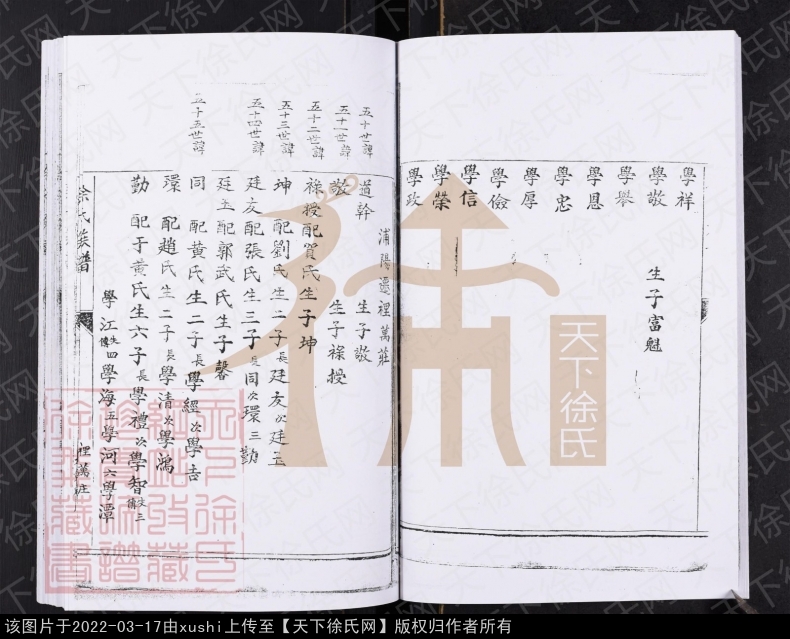 學祥
學敬 生子富魁
學舉
學恩
學忠
學厚
學儉
學信
學榮
學政
浦陽遷裡萬莊
五十世諱 道幹 生子敬
五十一世諱 敬 生子祿授
五十二世諱 祿授配賀氏生子坤
五十三世諱 坤 配劉氏生二子長廷友次廷玉
五十四世諱 廷友配張氏生三子長同次環三勤
廷玉配郭武氏生子馨
五十五世諱 同 配黃氏生二子長學經次學吉
環 配趙氏生二子長學清次學鴻
勤 配于黃氏生六子長學禮次學智失傳三
學江失傳四學海五學河六學潭
徐氏族譜
裡萬庄
天下徐氏
天下徐氏网
该图片于2022-03-17由xushi上传至【天下徐氏网】版权归作者所有